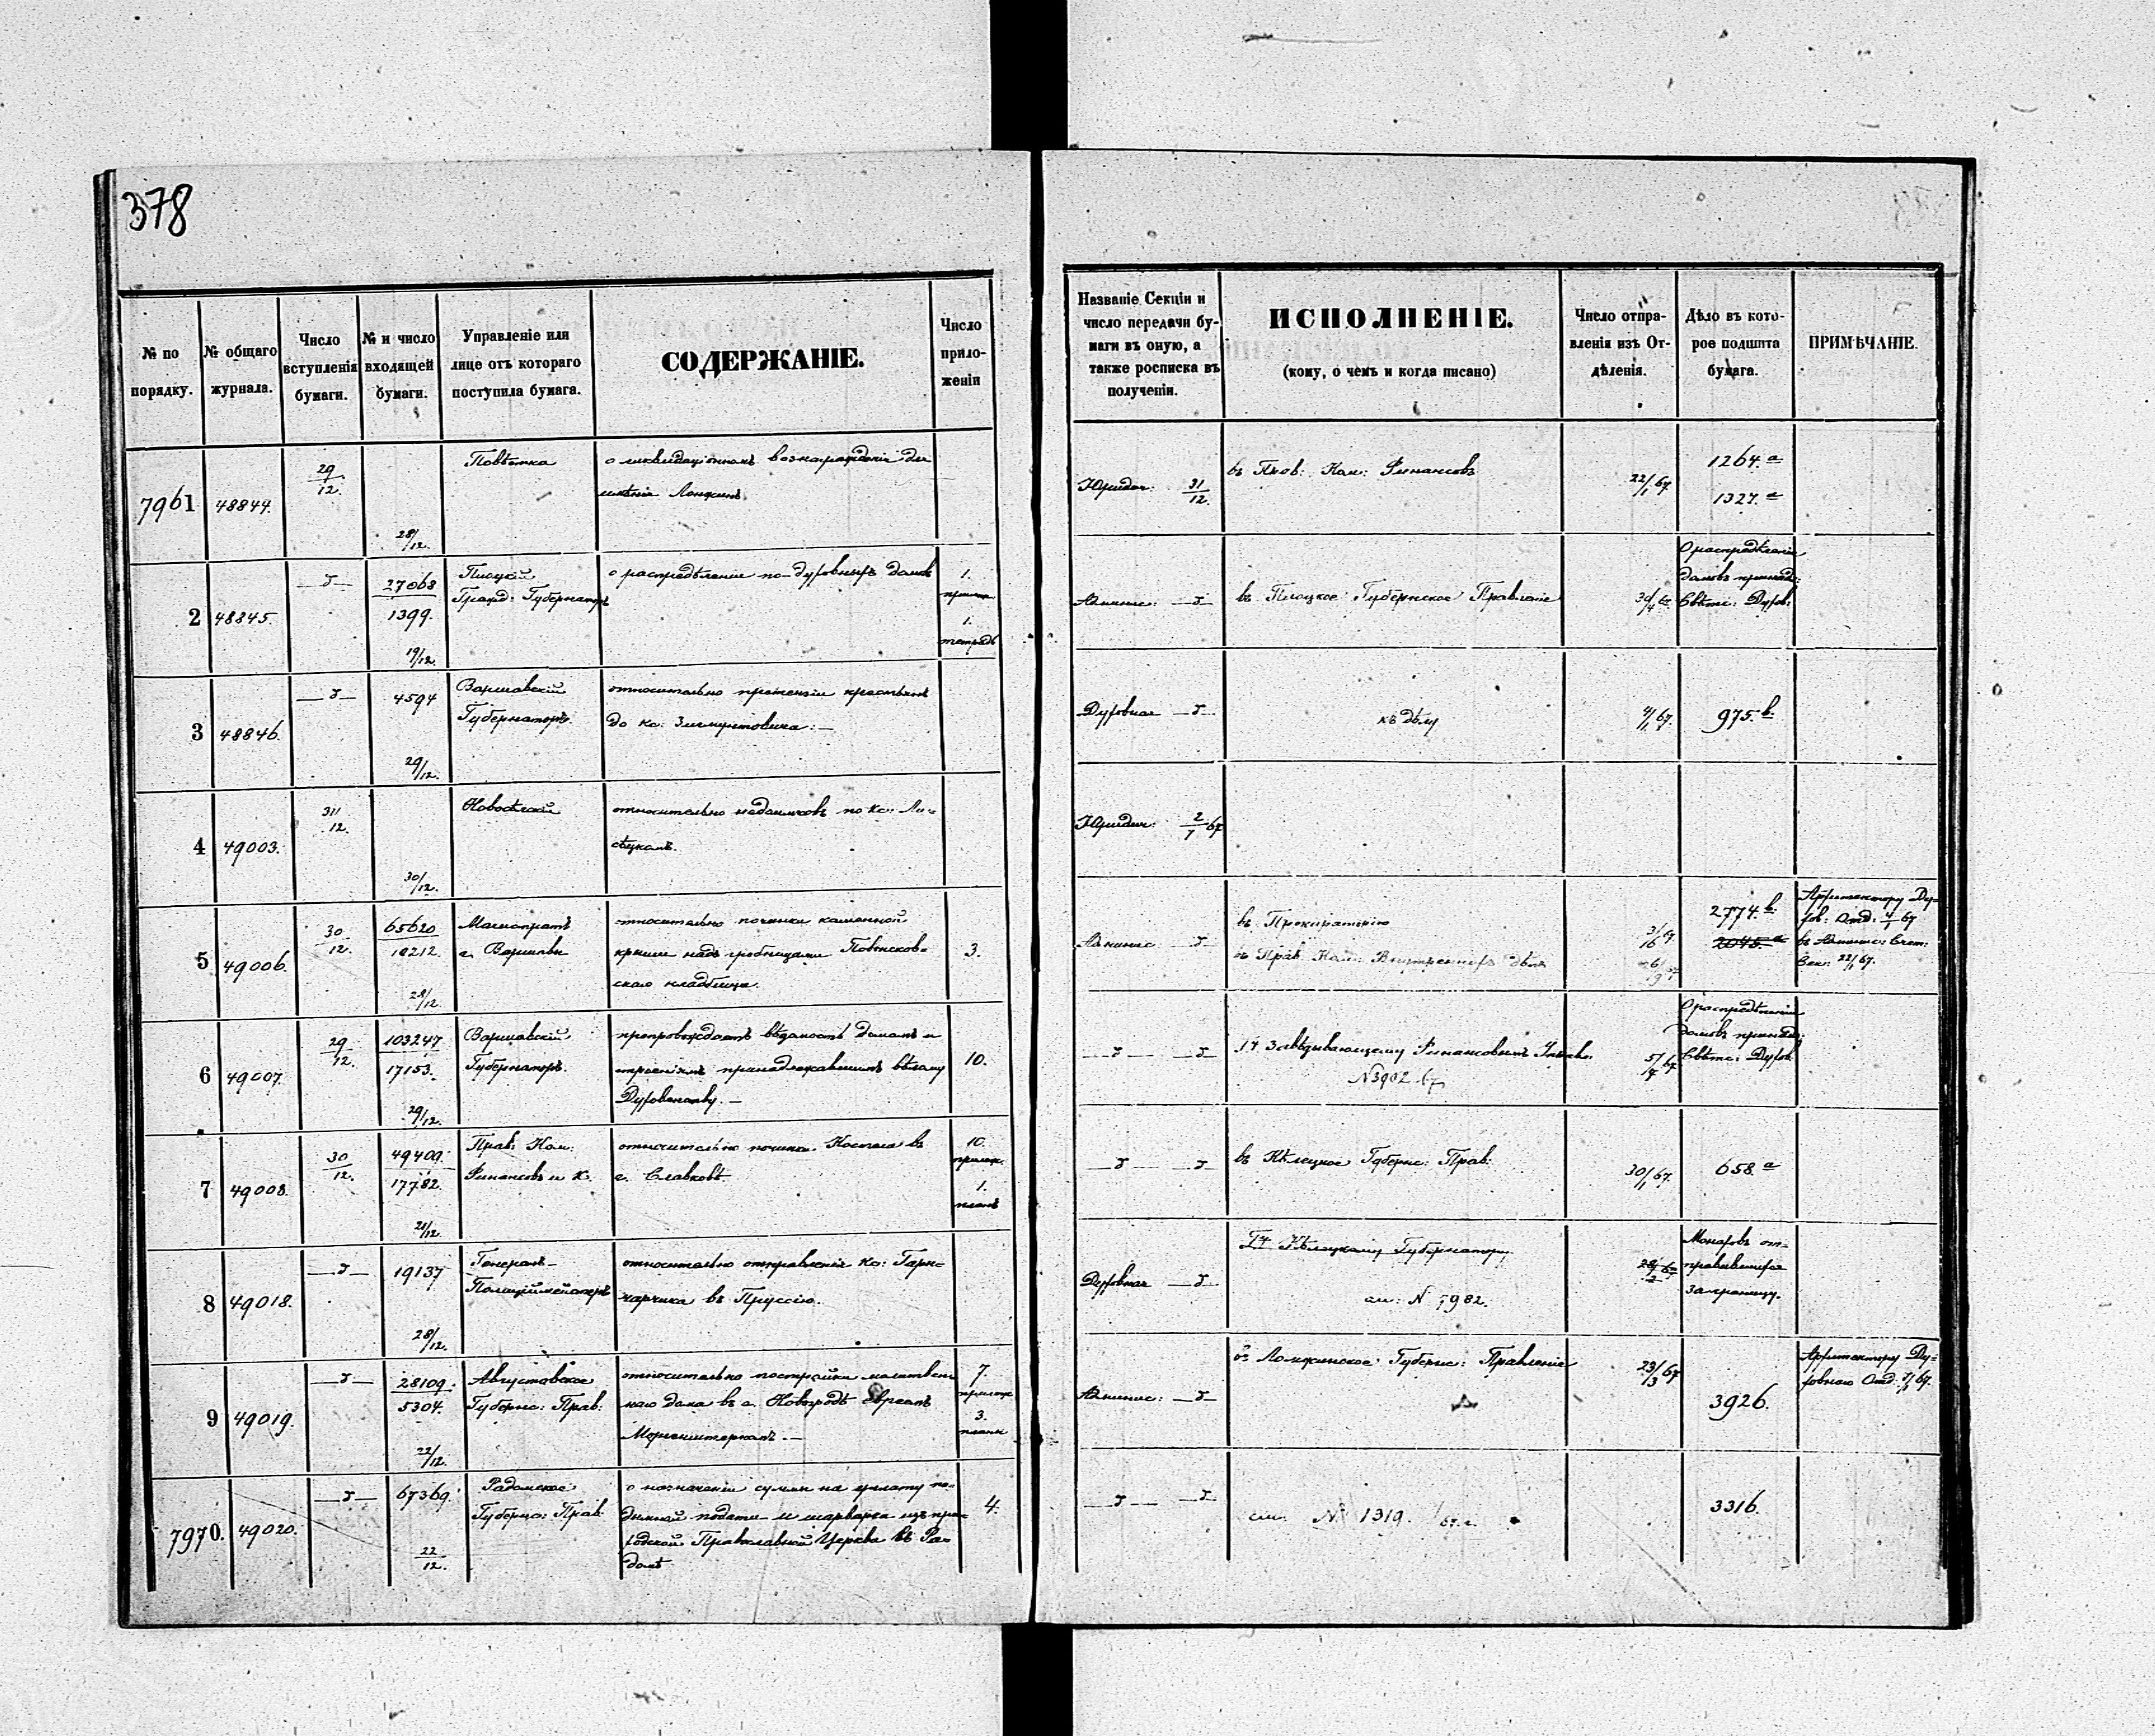 378
№ по порядку.
№ общаго журнала.
Число вступленія бумаги.
№ и число входящей бумаги.
Управленіе или лице отъ котораго поступила бумага.
СОДЕРЖАНІЕ.
Число приложеніи
Названіе Секціи и число передачи бумаги въ оную, а также росписка въ полученіи.
ИСПОЛНЕНІЕ.
(кому, о чемъ и когда писано)
Число отправленія изъ Отдѣленія.
Дѣло въ которое подшита бумага.
ПРИМѢЧАНІЕ.
7961 48844. 29/12. 28/12.
Повѣтка
о ликвидаціонномъ вознагражденіи для
имѣнія
Юридич: 31/12.
въ Прав: Ком: Финансовъ
22/1 67
1264.а
1327.а
2 48845. 27068 1399. 19/12.
Плоцкій
Гражд: Губернаторъ
о распредѣленіи по-духовныхъ домовъ
1.
прилож
1.
тетрадь
Админис:
въ Плоцкое Губернское Правленіе
О распредѣленіи
домовъ принад:
Свѣтс: Духов:
3 48846. 4594 29/12.
Варшавскій
Губернаторъ.
относительно претензіи крестьянъ
до кс:
Духовная
къ дѣлу
4/1 67.
975.b
4 49003. 31/12. 30/12.
относительно недоимковъ по кс: Ли-
сѣцкомъ.
Юридич: 2/1 67
5 49006. 30/12. 65620 18212. 28/12
Магистратъ
г. Варшавы
относительно починки каменной
крыши надъ гробницами Повонсков-
скаго кладбища.
3.
Админис
въ Прокураторію
въ Прав: Ком: Внутреннихъ дѣлъ
2774.b.
2045.а
Архитектору Ду-
хов: Отд: 4/1 67
въ Админис: Счет:
Сек: 22/1 67.
6 49007. 29/12. 103247 17153. 29/12.
Варшавскій
Губернаторъ.
препровождаетъ вѣдомость домамъ и
строеніямъ принадлежавшимъ бѣлому
Духовенству. —
10.
Завѣдывающему Финансовымъ Управ:
№3902 67
О распредѣленіи
домовъ принад:
Свѣтс: Духов
7 49008. 30/12. 49409. 17782. 21/12.
Прав: Ком:
Финансовъ и К.
относительно починки Костела въ
г. Славковѣ.
10.
прилож.
1.
планъ
въ Кѣлецкое Губернс: Прав:
30/1 67.
658 а
8 49018. 19137 28/12.
Генералъ-
Полиціймейстеръ
относительно отправленія кс: Гарн-
чарчика въ Пруссію.
Духовная
Гу Кѣлецкому Губернатору
см: № 7982.
Монаховъ от-
правившихся
за границу.
9 49019. 28109. 5304. 22/12.
Августовское
Губернс: Прав:
относительно постройки молитвен-
наго дома въ г. Новогродѣ Евреемъ
Моргенштерномъ. —
7.
прилож
3.
плана
Админис:
въ Ломжинское Губернс: Правленіе
23/3 67
3926.
Архитектору Ду-
ховнаго Отд:
7970. 49020. 67369. 22/12.
Радомское
Губернс: Прав
о назначеніи суммы на уплату по-
дымной подати и шарварка
Православной Церкви въ Ра-
домѣ
4.
см: № 1319.
3316.